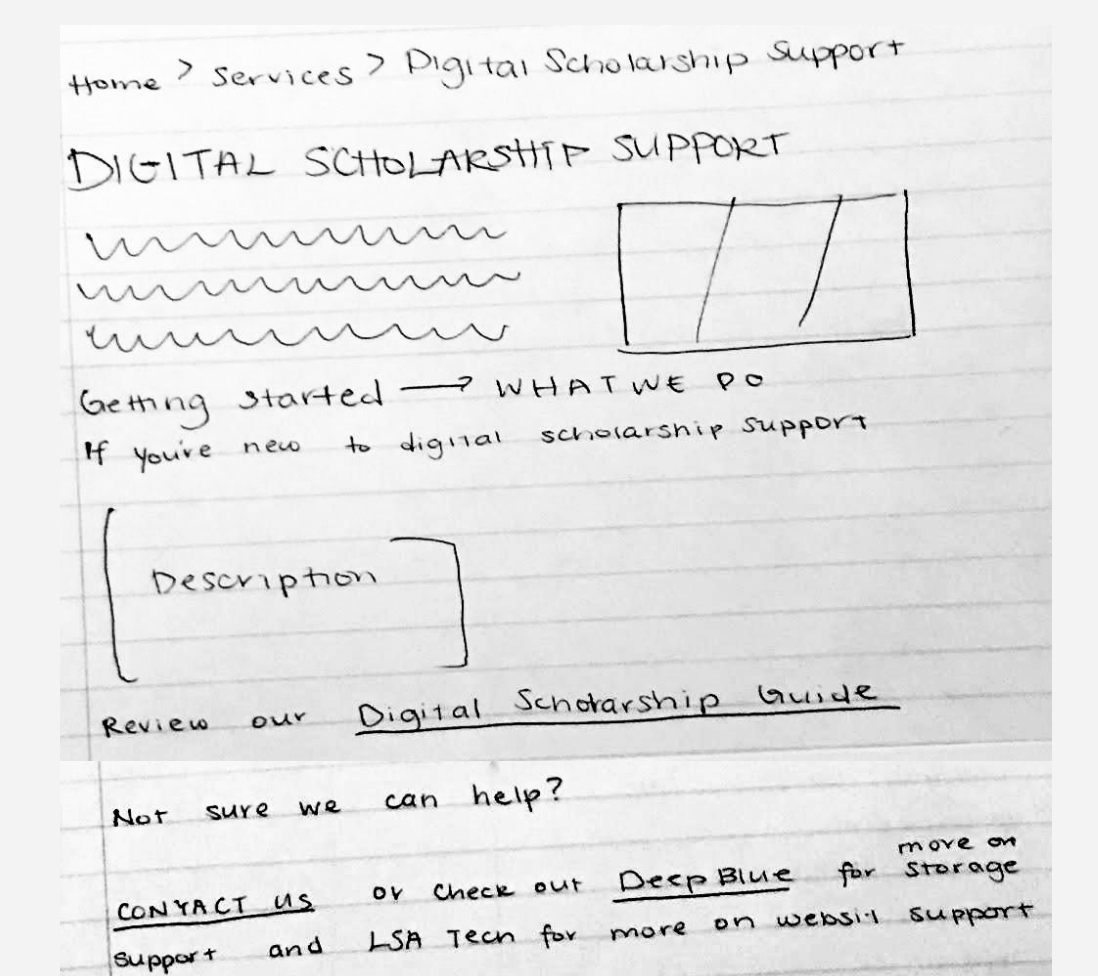 Home > Services > Digital Scholarship Support
DIGITAL SCHOLARSHIP SUPPORT
Getting started → WHAT WE DO
If you're new to digital scholarship support
Description
Review our Digital Scholarship Guide
Not sure we can help?
more on
CONTACT US or check out Deep Blue for storage
support and LSA Tech for more on websit support